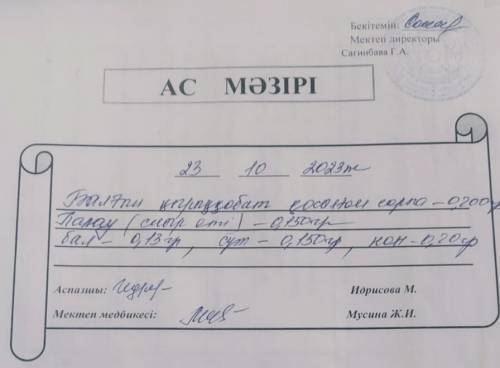 Бекітемін:
Мектеп директоры
Сагинбава Г.А.
АС МӘЗІРІ
23 10 2023ж
Балғын қырыққабат қосылған сорпа – 0,200гр
Палау (сиыр еті) – 0,150гр
бал – 0,13гр, сүт – 0,150гр, нан – 0,20гр
Аспазшы: Идрисова М.
Мектеп медбикесі: Мусина Ж.И.